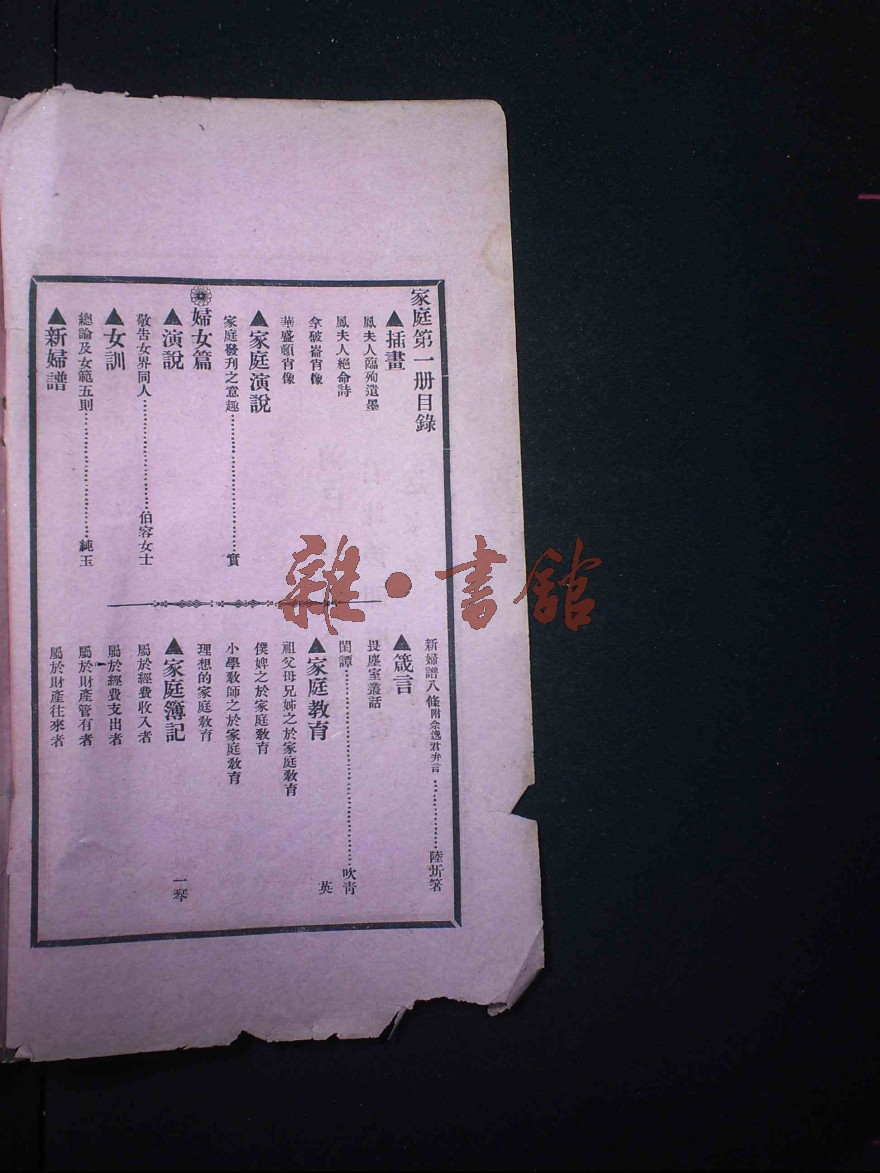 家庭第一册目錄
▲插畫
鳳夫人臨殉遺墨
鳳夫人絕命詩
拿破崙肖像
華盛頓肖像
▲家庭演說
家庭發刊之意趣…………實
婦女篇
▲演說
敬告女界同人…………伯容女士
▲女訓
總論及女範五則…………純玉
▲新婦譜
新婦譜八條附佘逸君弁言…………陸圻箸
▲箴言
畏塵室叢話
閨譚…………吹青
▲家庭教育 英
祖父母兄姊之於家庭教育
僕婢之於家庭教育
小學教師之於家庭教育
理想的家庭教育
▲家庭簿記 一琴
屬於經費收入者
屬於經費支出者
屬於財產管有者
屬於財產往來者
雜·書館